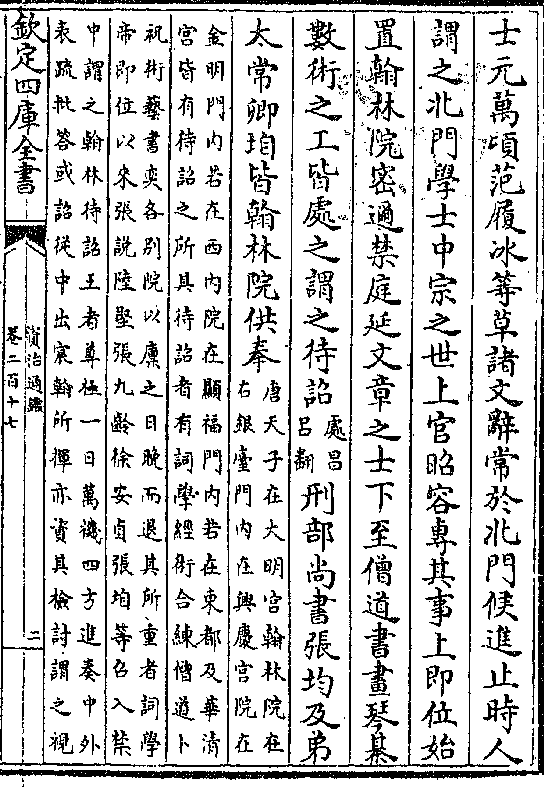 士元萬頃范履冰等草諸文辭常於北門候進止時人
謂之北門學士中宗之世上官昭容專其事上即位始
置翰林院密邇禁庭延文章之士下至僧道書畫琴棊
數術之工皆處之謂之待詔
處昌
呂翻
刑部尚書張均及弟
太常卿垍皆翰林院供奉
唐天子在大明宮翰林院在
右銀臺門內在興慶宮院在
金明門內若在西內院在顯福門內若在東都及華清
宮皆有待詔之所具待詔者有詞學經術合練僧道卜
祝術藝書奕各別院以廩之日晚而退其所重者詞學
帝即位以來張說陸堅張九齡徐安貞張垍等召入禁
中謂之翰林待詔王者尊極一日萬機四方進奏中外
表疏批答或詔從中出宸翰所揮亦資其檢討謂之視
欽定四庫全書
資治通鑑
卷二百十七
二